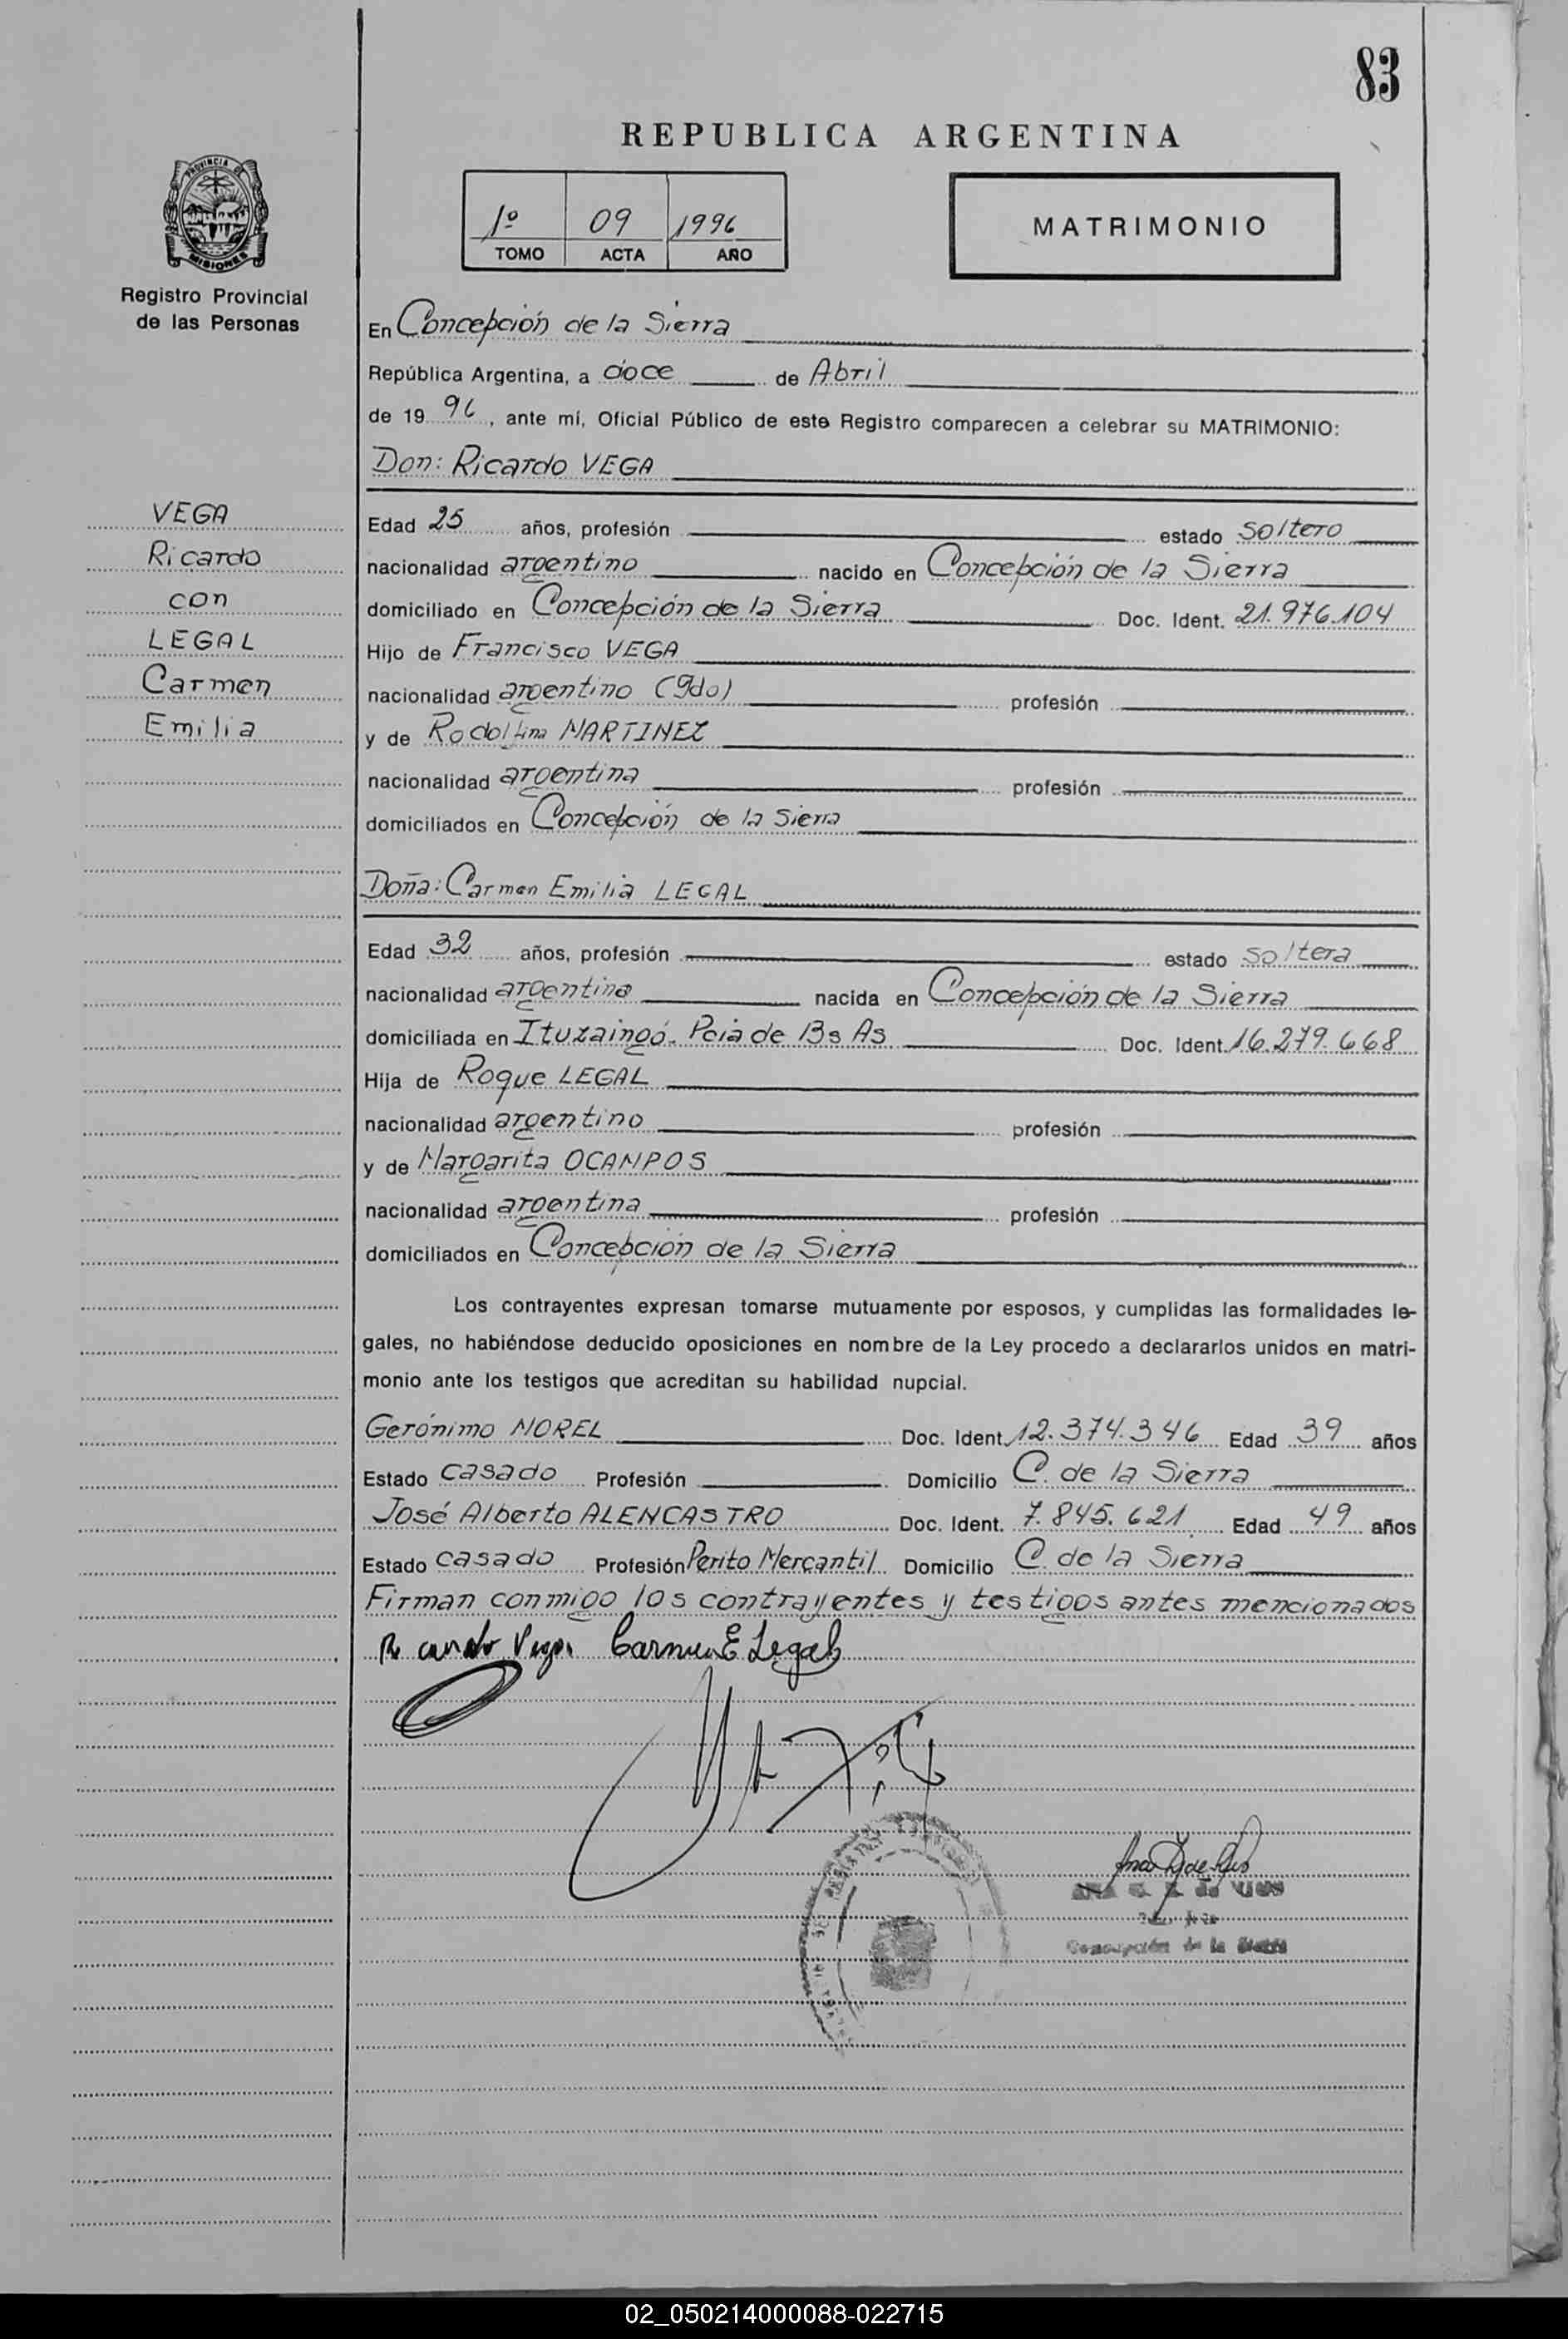 83
REPUBLICA ARGENTINA
PROVINCIA DE
MISIONES
Registro Provincial
de las Personas
1º 09 1996
TOMO ACTA AÑO
MATRIMONIO
En Concepción de la Sierra
República Argentina, a doce de Abril
de 19 96, ante mí, Oficial Público de este Registro comparecen a celebrar su MATRIMONIO:
Don: Ricardo VEGA
VEGA
Ricardo
con
LEGAL
Carmen
Emilia
Edad 25 años, profesión estado soltero
nacionalidad argentino nacido en Concepción de la Sierra
domiciliado en Concepción de la Sierra Doc. Ident. 21.976.104
Hijo de Francisco VEGA
nacionalidad argentino (gdo) profesión
y de Rodolfina MARTINEZ
nacionalidad argentina profesión
domiciliados en Concepción de la Sierra
Doña: Carmen Emilia LEGAL
Edad 32 años, profesión estado soltera
nacionalidad argentina nacida en Concepción de la Sierra
domiciliada en Ituzaingó. Pcia de Bs As Doc. Ident. 16.279.668
Hija de Roque LEGAL
nacionalidad argentino profesión
y de Margarita OCAMPOS
nacionalidad argentina profesión
domiciliados en Concepción de la Sierra
Los contrayentes expresan tomarse mutuamente por esposos, y cumplidas las formalidades le-
gales, no habiéndose deducido oposiciones en nombre de la Ley procedo a declararlos unidos en matri-
monio ante los testigos que acreditan su habilidad nupcial.
Gerónimo MOREL Doc. Ident. 12.374.346 Edad 39 años
Estado casado Profesión Domicilio C. de la Sierra
José Alberto ALENCASTRO Doc. Ident. 7.845.621 Edad 49 años
Estado casado Profesión Perito Mercantil Domicilio C. de la Sierra
Firman conmigo los contrayentes y testigos antes mencionados
Ricardo Vega Carmen E Legal
Concepción de la Sierra
02_050214000088-022715